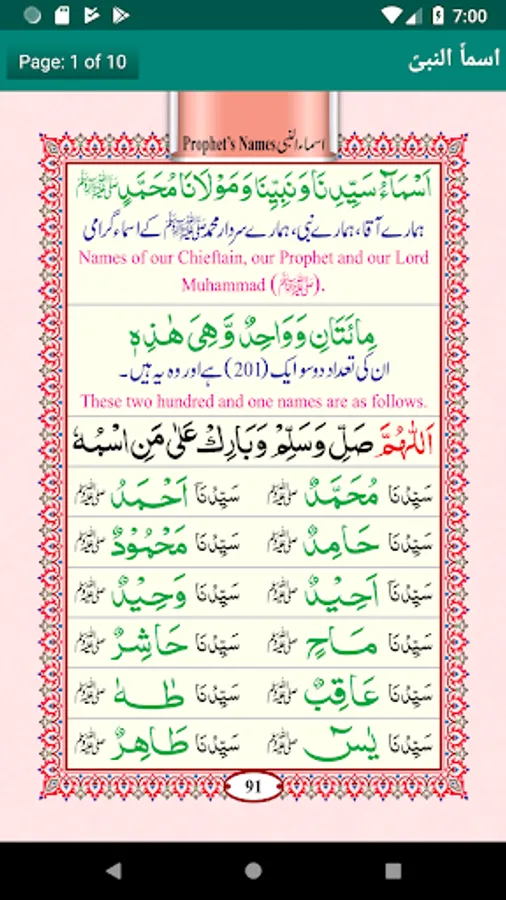 7:00
Page: 1 of 10
اسماً النبیؐ
Prophet's Names اسماء النبی
اَسْمَآءُ سَيِّدِنَا وَنَبِيِّنَا وَمَوْلَانَا مُحَمَّدٍ ﷺ
ہمارے آقا، ہمارے نبی، ہمارے سردار محمد ﷺ کے اسماء گرامی
Names of our Chieftain, our Prophet and our Lord
Muhammad (ﷺ).
مِائَتَانِ وَوَاحِدٌ وَّهِىَ هٰذِهٖ
ان کی تعداد دو سو ایک (201) ہے اور وہ یہ ہیں۔
These two hundred and one names are as follows.
اَللّٰهُمَّ صَلِّ وَسَلِّمْ وَبَارِكْ عَلٰى مَنِ اسْمُهٗ
سَيِّدُنَا مُحَمَّدٌ ﷺ سَيِّدُنَا اَحْمَدُ ﷺ
سَيِّدُنَا حَامِدٌ ﷺ سَيِّدُنَا مَحْمُوْدٌ ﷺ
سَيِّدُنَا اَحِيْدٌ ﷺ سَيِّدُنَا وَحِيْدٌ ﷺ
سَيِّدُنَا مَاحٍ ﷺ سَيِّدُنَا حَاشِرٌ ﷺ
سَيِّدُنَا عَاقِبٌ ﷺ سَيِّدُنَا طٰهٰ ﷺ
سَيِّدُنَا يٰسٓ ﷺ سَيِّدُنَا طَاهِرٌ ﷺ
91